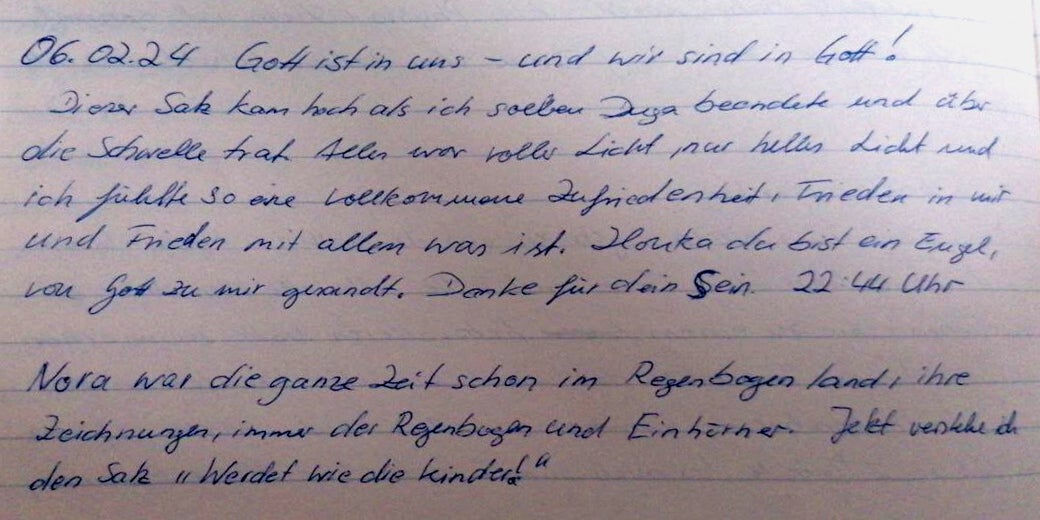 06.02.24 Gott ist in uns – und wir sind in Gott!
Dieser Satz kam hoch als ich soeben Duga beendete und über
die Schwelle trat. Alles war voller Licht, nur helles Licht und
ich fühlte so eine vollkommene Zufriedenheit, Frieden in mir
und Frieden mit allem was ist. Ilonka du bist ein Engel,
von Gott zu mir gesandt. Danke für dein Sein. 22:44 Uhr
Nora war die ganze Zeit schon im Regenbogenland, ihre
Zeichnungen, immer der Regenbogen und Einhörner. Jetzt verstehe ich
den Satz "Werdet wie die Kinder!"